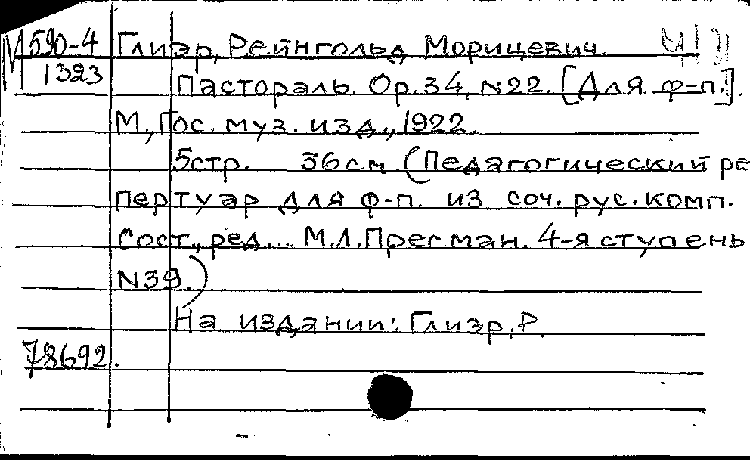 М 590-4 Глиэр, Рейнгольд Морицевич.
1323 Пастораль. Ор.34, №22. [Для ф-п.].
М., Гос. муз. изд., 1922.
5стр. 36см. (Педагогический ре
пертуар для ф-п. из соч. рус. комп.
Сост., ред... М.Л.Пресман. 4-я ступень
№39.)
На издании: Глиэр, Р.
78692.